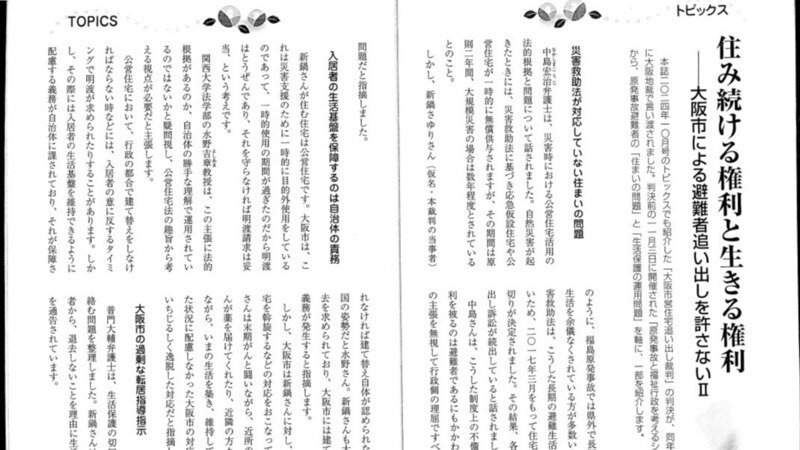 トピックス
住み続ける権利と生きる権利
――大阪市による避難者追い出しを許さないⅡ
本誌二〇二四年一〇月号のトピックスでも紹介した「大阪市営住宅追い出し裁判」の判決が、同年
に大阪地裁で言い渡されました。判決前の一一月三日に開催された「原発事故と福祉行政を考えるシ
から、原発事故避難者の「住まいの問題」と「生活保護の運用問題」を軸に、一部を紹介します。
災害救助法が対応していない住まいの問題
中島宏治弁護士は、災害時における公営住宅活用の
なかじまこうじ
法的根拠と問題について話されました。自然災害が起
きたときには、災害救助法に基づき応急仮設住宅や公
営住宅が一時的に無償供与されますが、その期間は原
則二年間、大規模災害の場合は数年程度とされている
とのこと。
しかし、新鍋さゆりさん（仮名・本裁判の当事者）
のように、福島原発事故では県外で長
生活を余儀なくされている方が多数い
害救助法は、こうした長期の避難生活
いため、二〇一七年三月をもって住宅
切りが決定されました。その結果、各
出し訴訟が続出していると話されまし
中島さんは、こうした制度上の不備
利を被るのは避難者であるにもかかわ
の主張を無視して行政側の理屈ですべ
TOPICS
問題だと指摘しました。
入居者の生活基盤を保障するのは自治体の責務
新鍋さんが住む住宅は公営住宅です。大阪市は、こ
れは災害支援のために一時的に目的外使用をしている
のであって、一時的使用の期間が過ぎたのだから明渡
はとうぜんであり、それを守らなければ明渡請求は妥
当、という考えです。
関西大学法学部の水野吉章教授は、この主張に法的
根拠があるのか、自治体の勝手な理解で運用されてい
るのではないかと疑問視し、公営住宅法の趣旨から考
える視点が必要だと主張します。
公営住宅において、行政の都合で建て替えをしなけ
ればならない時などには、入居者の意に反するタイミ
ングで明渡が求められたりすることがあります。しか
し、その際には入居者の生活基盤を維持できるように
配慮する義務が自治体に課されており、それが保障さ
れなければ建て替え自体が認められな
国の姿勢だと水野さん。新鍋さんも大
去を求められており、大阪市には建て
義務が発生すると指摘します。
しかし、大阪市は新鍋さんに対し、
宅を斡旋するなどの対応をおこなって
さんは末期がんと闘いながら、近所の
んが薬を届けてくれたり、近隣の方た
ながら、いまの生活を築き、維持して
た状況に配慮しなかった大阪市の対応
いちじるしく逸脱した対応だと指摘し
大阪市の過剰な転居指導指示
普門大輔弁護士は、生活保護の切
絡む問題を整理しました。新鍋さんは
者から、退去しないことを理由に生活
を通告されています。